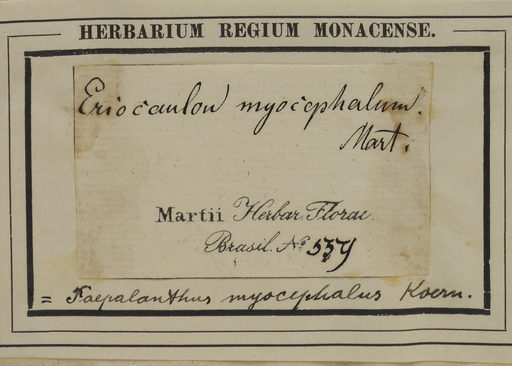 HERBARIUM REGIUM MONACENSE.
Eriocaulon myocephalum.
Mart.
Martii Herbar. Florae
Brasil. No. 559
= Paepalanthus myocephalus Koern.